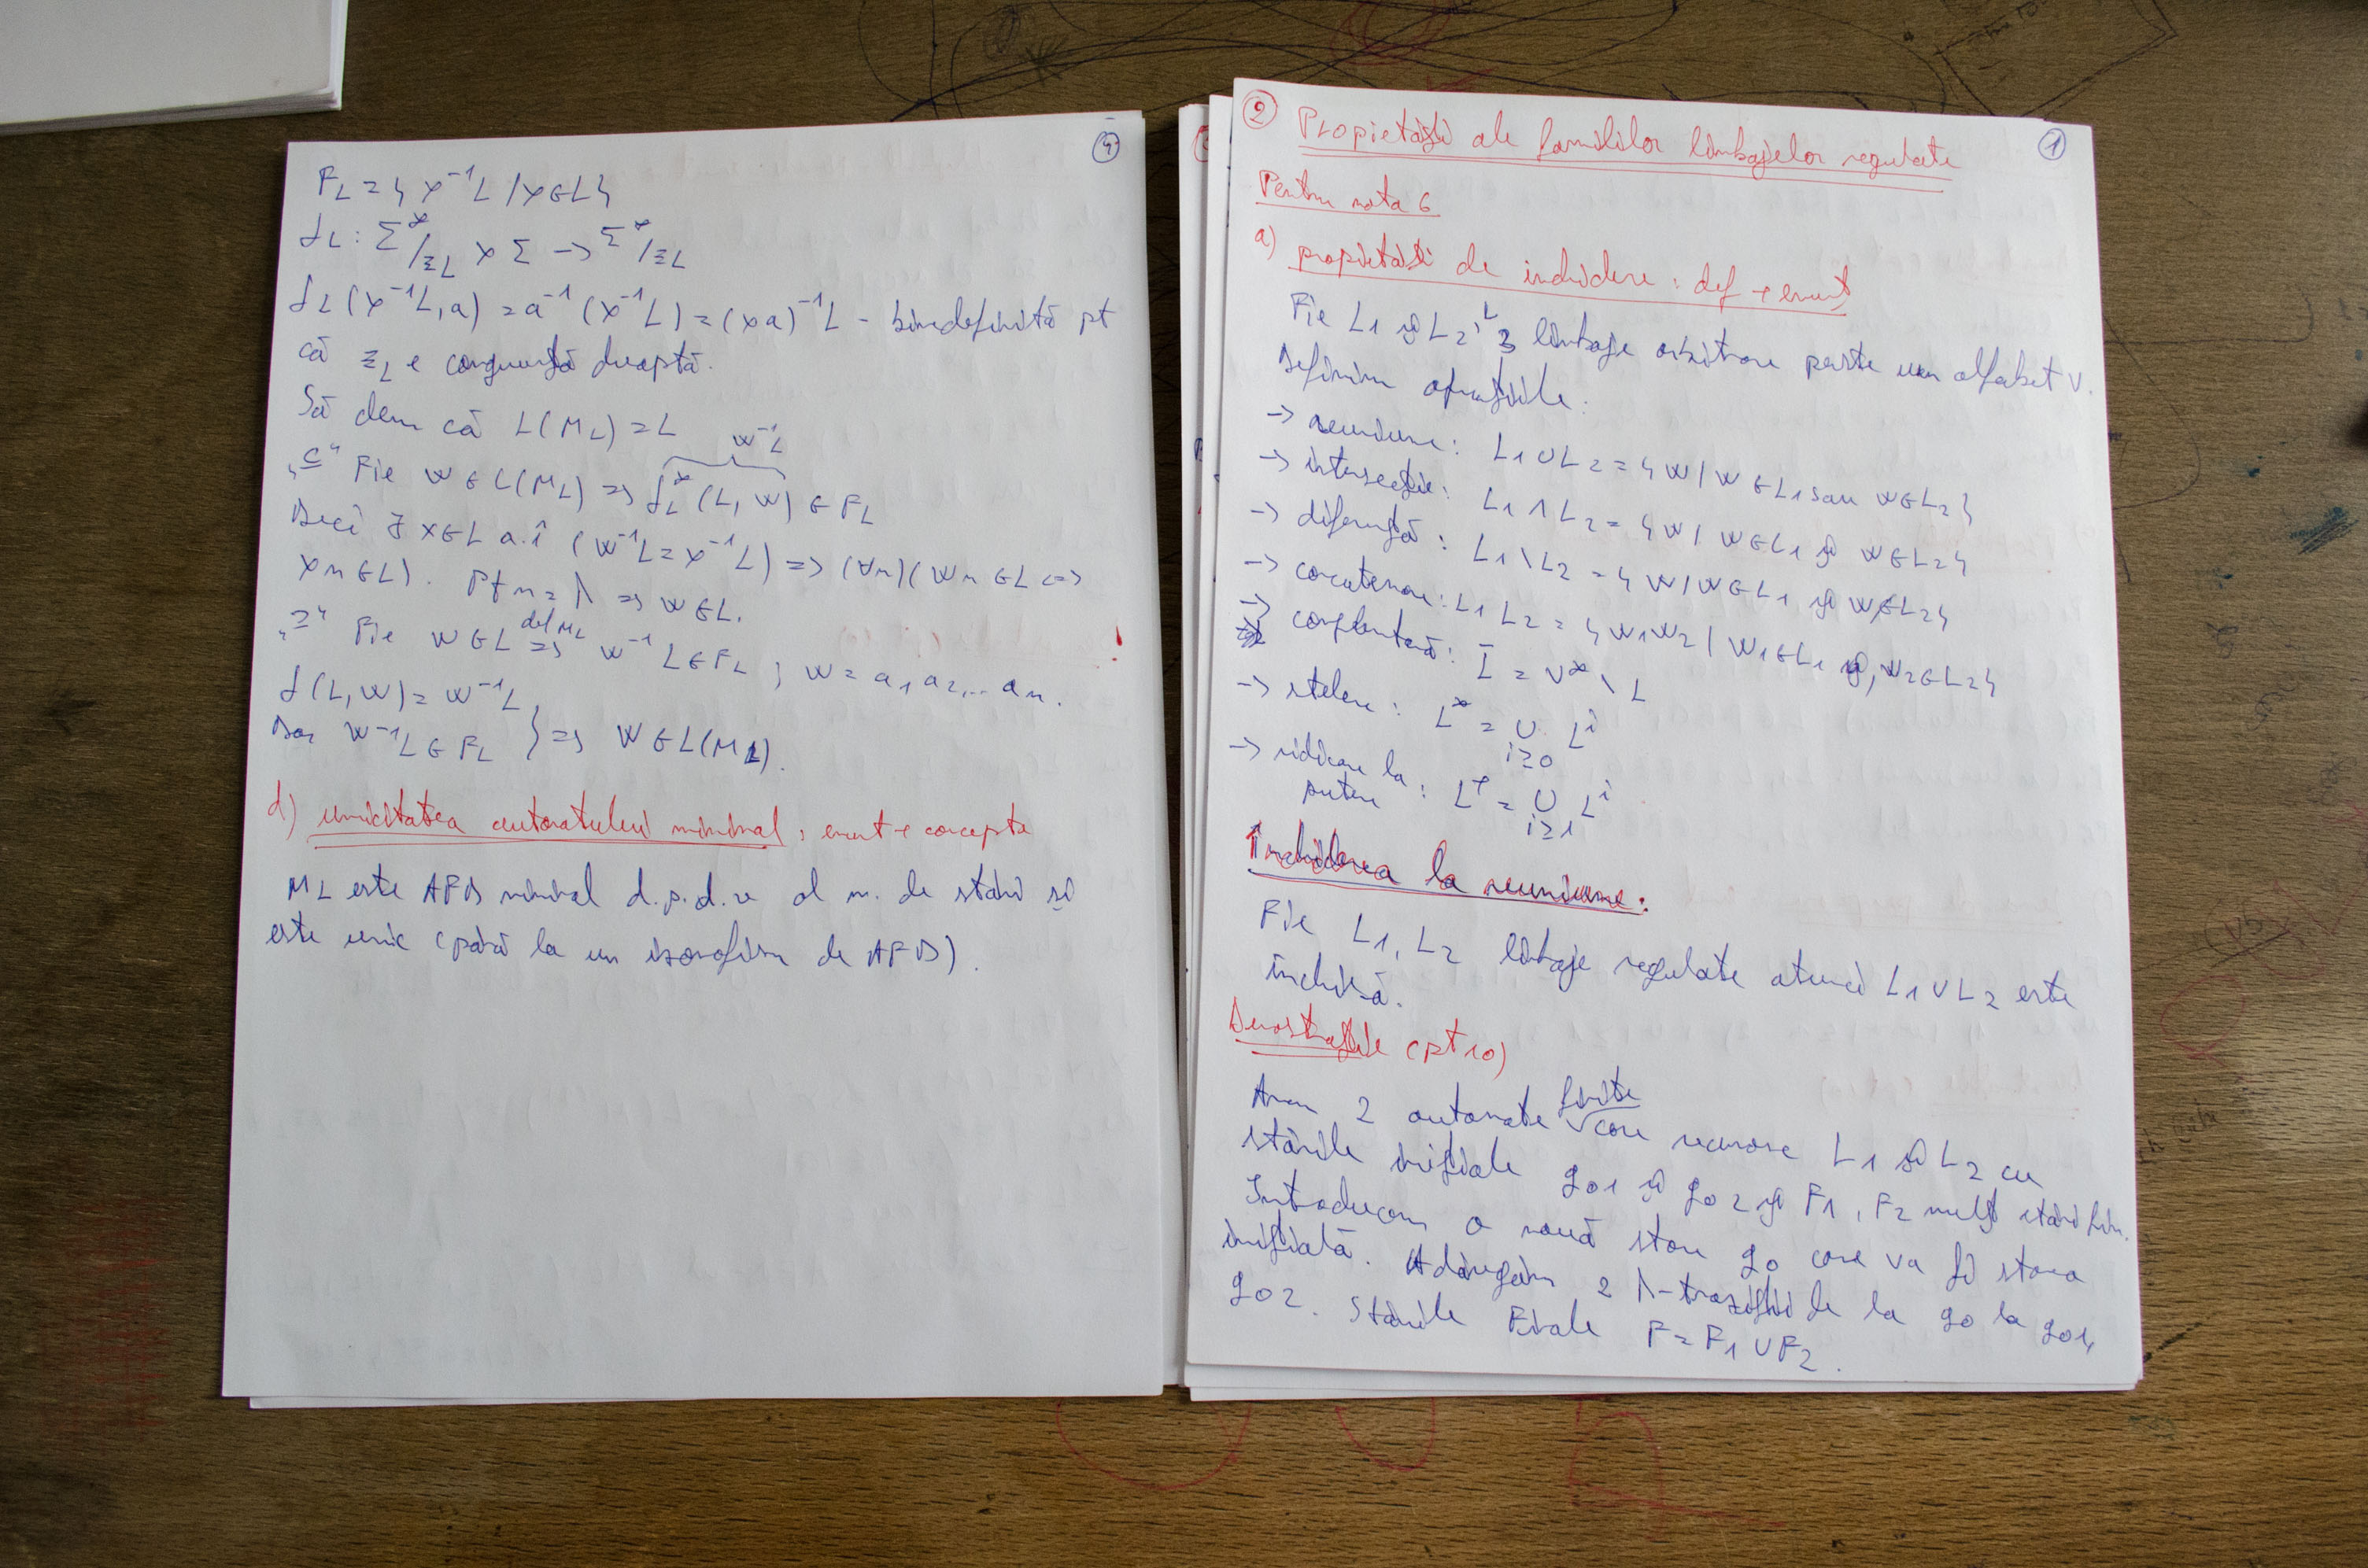 4
F_L = { x⁻¹L / x ∈ L }
δ_L : Σ*/≡_L × Σ -> Σ*/≡_L
δ_L (x⁻¹L, a) = a⁻¹ (x⁻¹L) = (xa)⁻¹L - binedefinită pt
că ≡_L e congruență dreaptă.
Să dem că L(M_L) = L
w⁻¹L
„⊆" Fie w ∈ L(M_L) => δ_L* (L, w) ∈ F_L
Deci ∃ x ∈ L a.î (w⁻¹L = x⁻¹L) => (∀u)(wu ∈ L <=>
xu ∈ L). Pt u = λ => w ∈ L.
„⊇" Fie w ∈ L =>(def M_L) w⁻¹L ∈ F_L ; w = a₁a₂...aₙ. !
δ(L, w) = w⁻¹L
Dar w⁻¹L ∈ F_L } => w ∈ L(M_L).
d) unicitatea automatului minimal : enunt + concepte
M_L este AFD minimal d.p.d.v al n. de stări și
este unic (până la un izomofism de AFD).
2 Propietăți ale familiilor limbajelor regulate 1
Pentru nota 6
a) propietăți de inchidere : def + enunț
Fie L1 și L2, L 3 limbaje arbitrare peste un alfabet V.
Definim operațiile:
-> reuniune: L1 ∪ L2 = { w / w ∈ L1 sau w ∈ L2 }
-> intersecție: L1 ∩ L2 = { w / w ∈ L1 și w ∈ L2 }
-> diferență: L1 \ L2 = { w / w ∈ L1 și w ∉ L2 }
-> concatenare: L1 L2 = { w1w2 / w1 ∈ L1 și, w2 ∈ L2 }
-> complementară: L̄ = V* \ L
-> stelare: L* = ∪ Lⁱ
i≥0
-> ridicare la
putere : L⁺ = ∪ Lⁱ
i≥1
Inchiderea la reuniune:
Fie L1, L2 limbaje regulate atunci L1 ∪ L2 este
închisă.
Demostrațile (pt 10)
Avem 2 automate finite care recunosc L1 și L2 cu
stările inițiale q01 și q02 și F1, F2 mulț stări fin.
Introducem o nouă stare q0 care va fi starea
inițială. Adăugăm 2 λ-traziții de la q0 la q01,
q02. Stările Finale F = F1 ∪ F2.